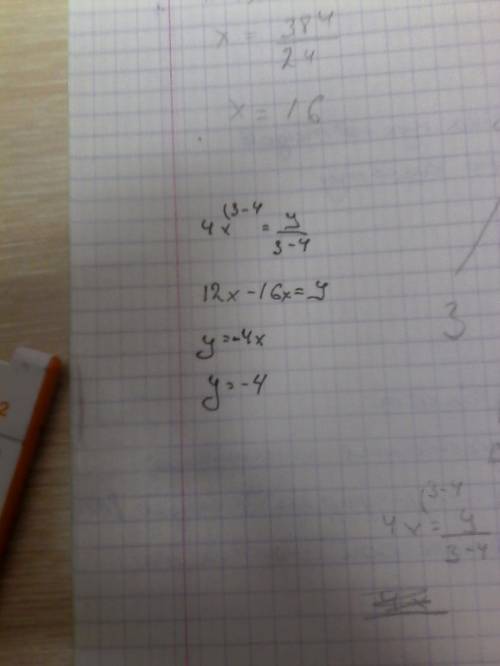 x = 384/24
x = 16
4x^(3-4 = y/3-4
12x - 16x = y
y = -4x
y = -4
3
4x^(3-4 = y/3-4
2